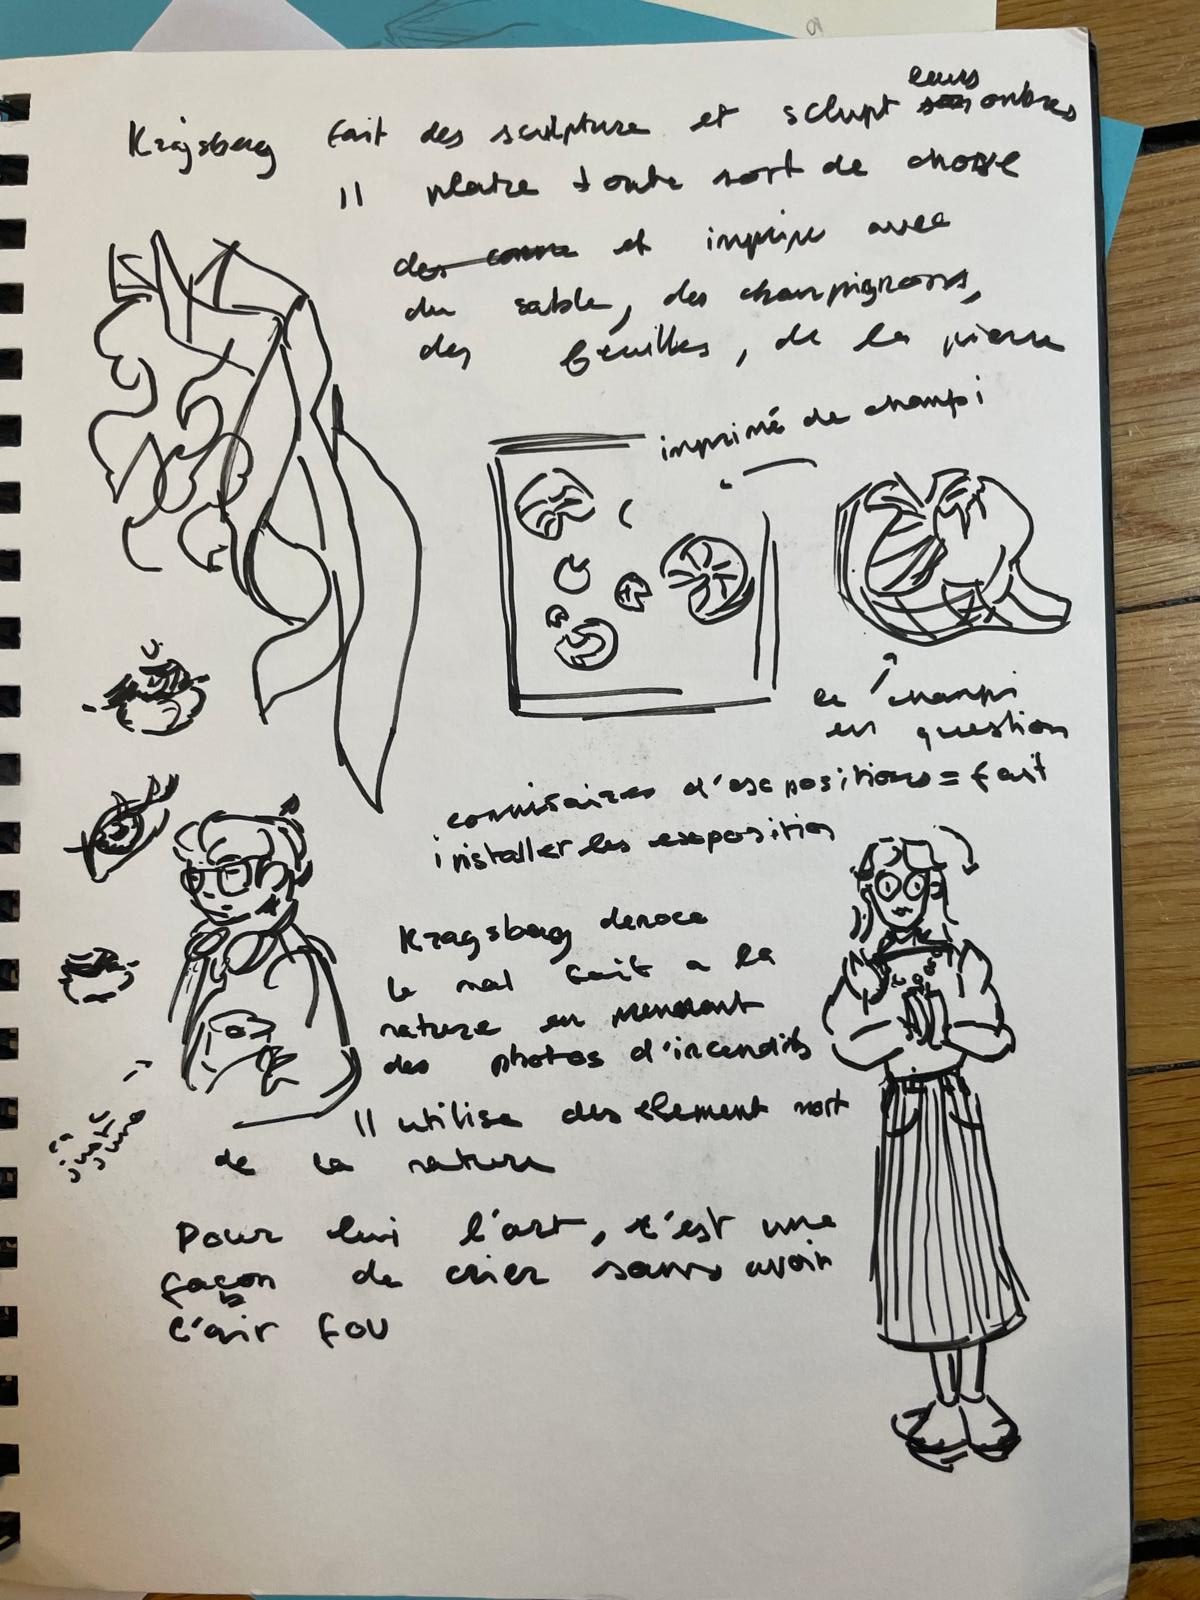 Krajsberg fait des sculpture et sclupt leurs ombres
Il platre toute sort de chose
des et imprime avec
du sable, des champignons,
des feuilles, de la pierre
imprimé de champi
le champi
en question
commisaires d'expositions = fait
installer les exposition
Kragsberg denoce
le mal fait a la
nature en prenant
des photos d'incendits
Il utilise des element mort
de la nature
Pour lui l'art, c'est une
façon de crier sans avoir
l'air fou